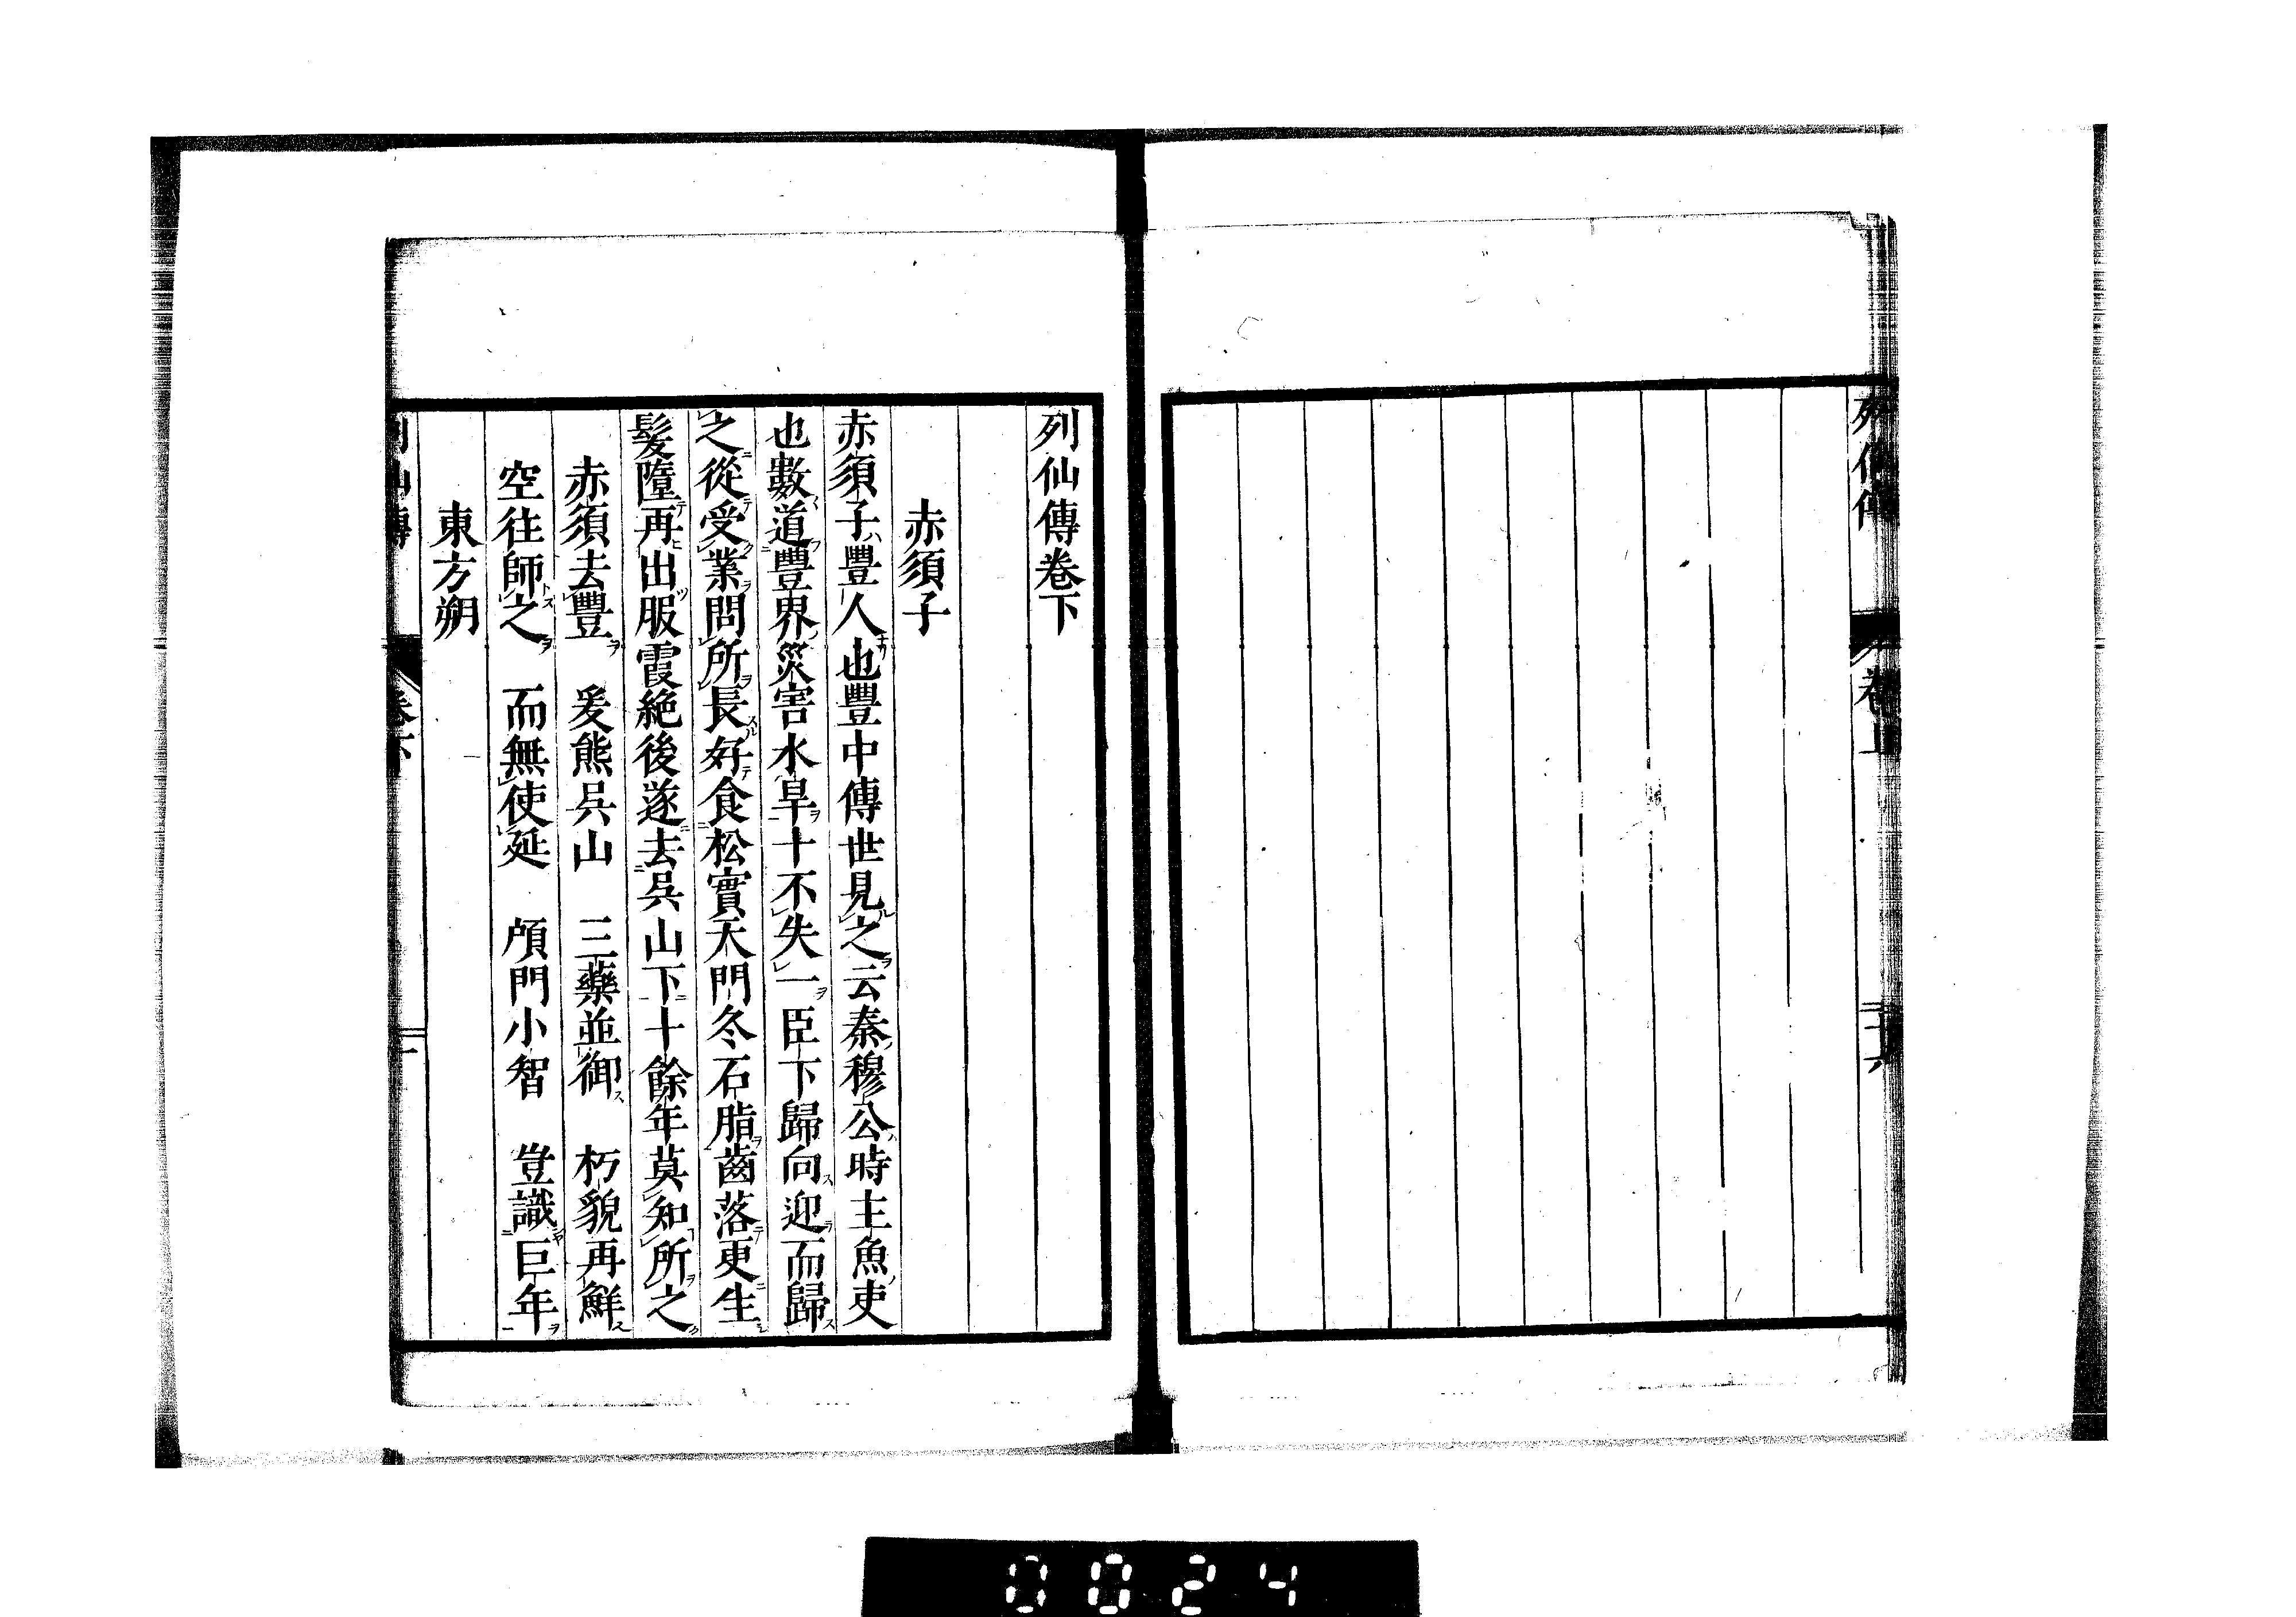 列仙傳
卷上
二十六
列仙傳卷下
赤須子
赤須子豐人也豐中傳世見之云秦穆公時主魚吏
也數道豐界災害水旱十不失一臣下歸向迎而歸
之從受業問所長好食松實天門冬石脂齒落更生
髮墮再出服霞絶後遂去呉山下十餘年莫知所之
赤須去豐 爰熊呉山 三藥並御 朽貌再鮮
空往師之 而無使延 顧門小智 豈識巨年
東方朔
列仙傳
卷下
一
0024